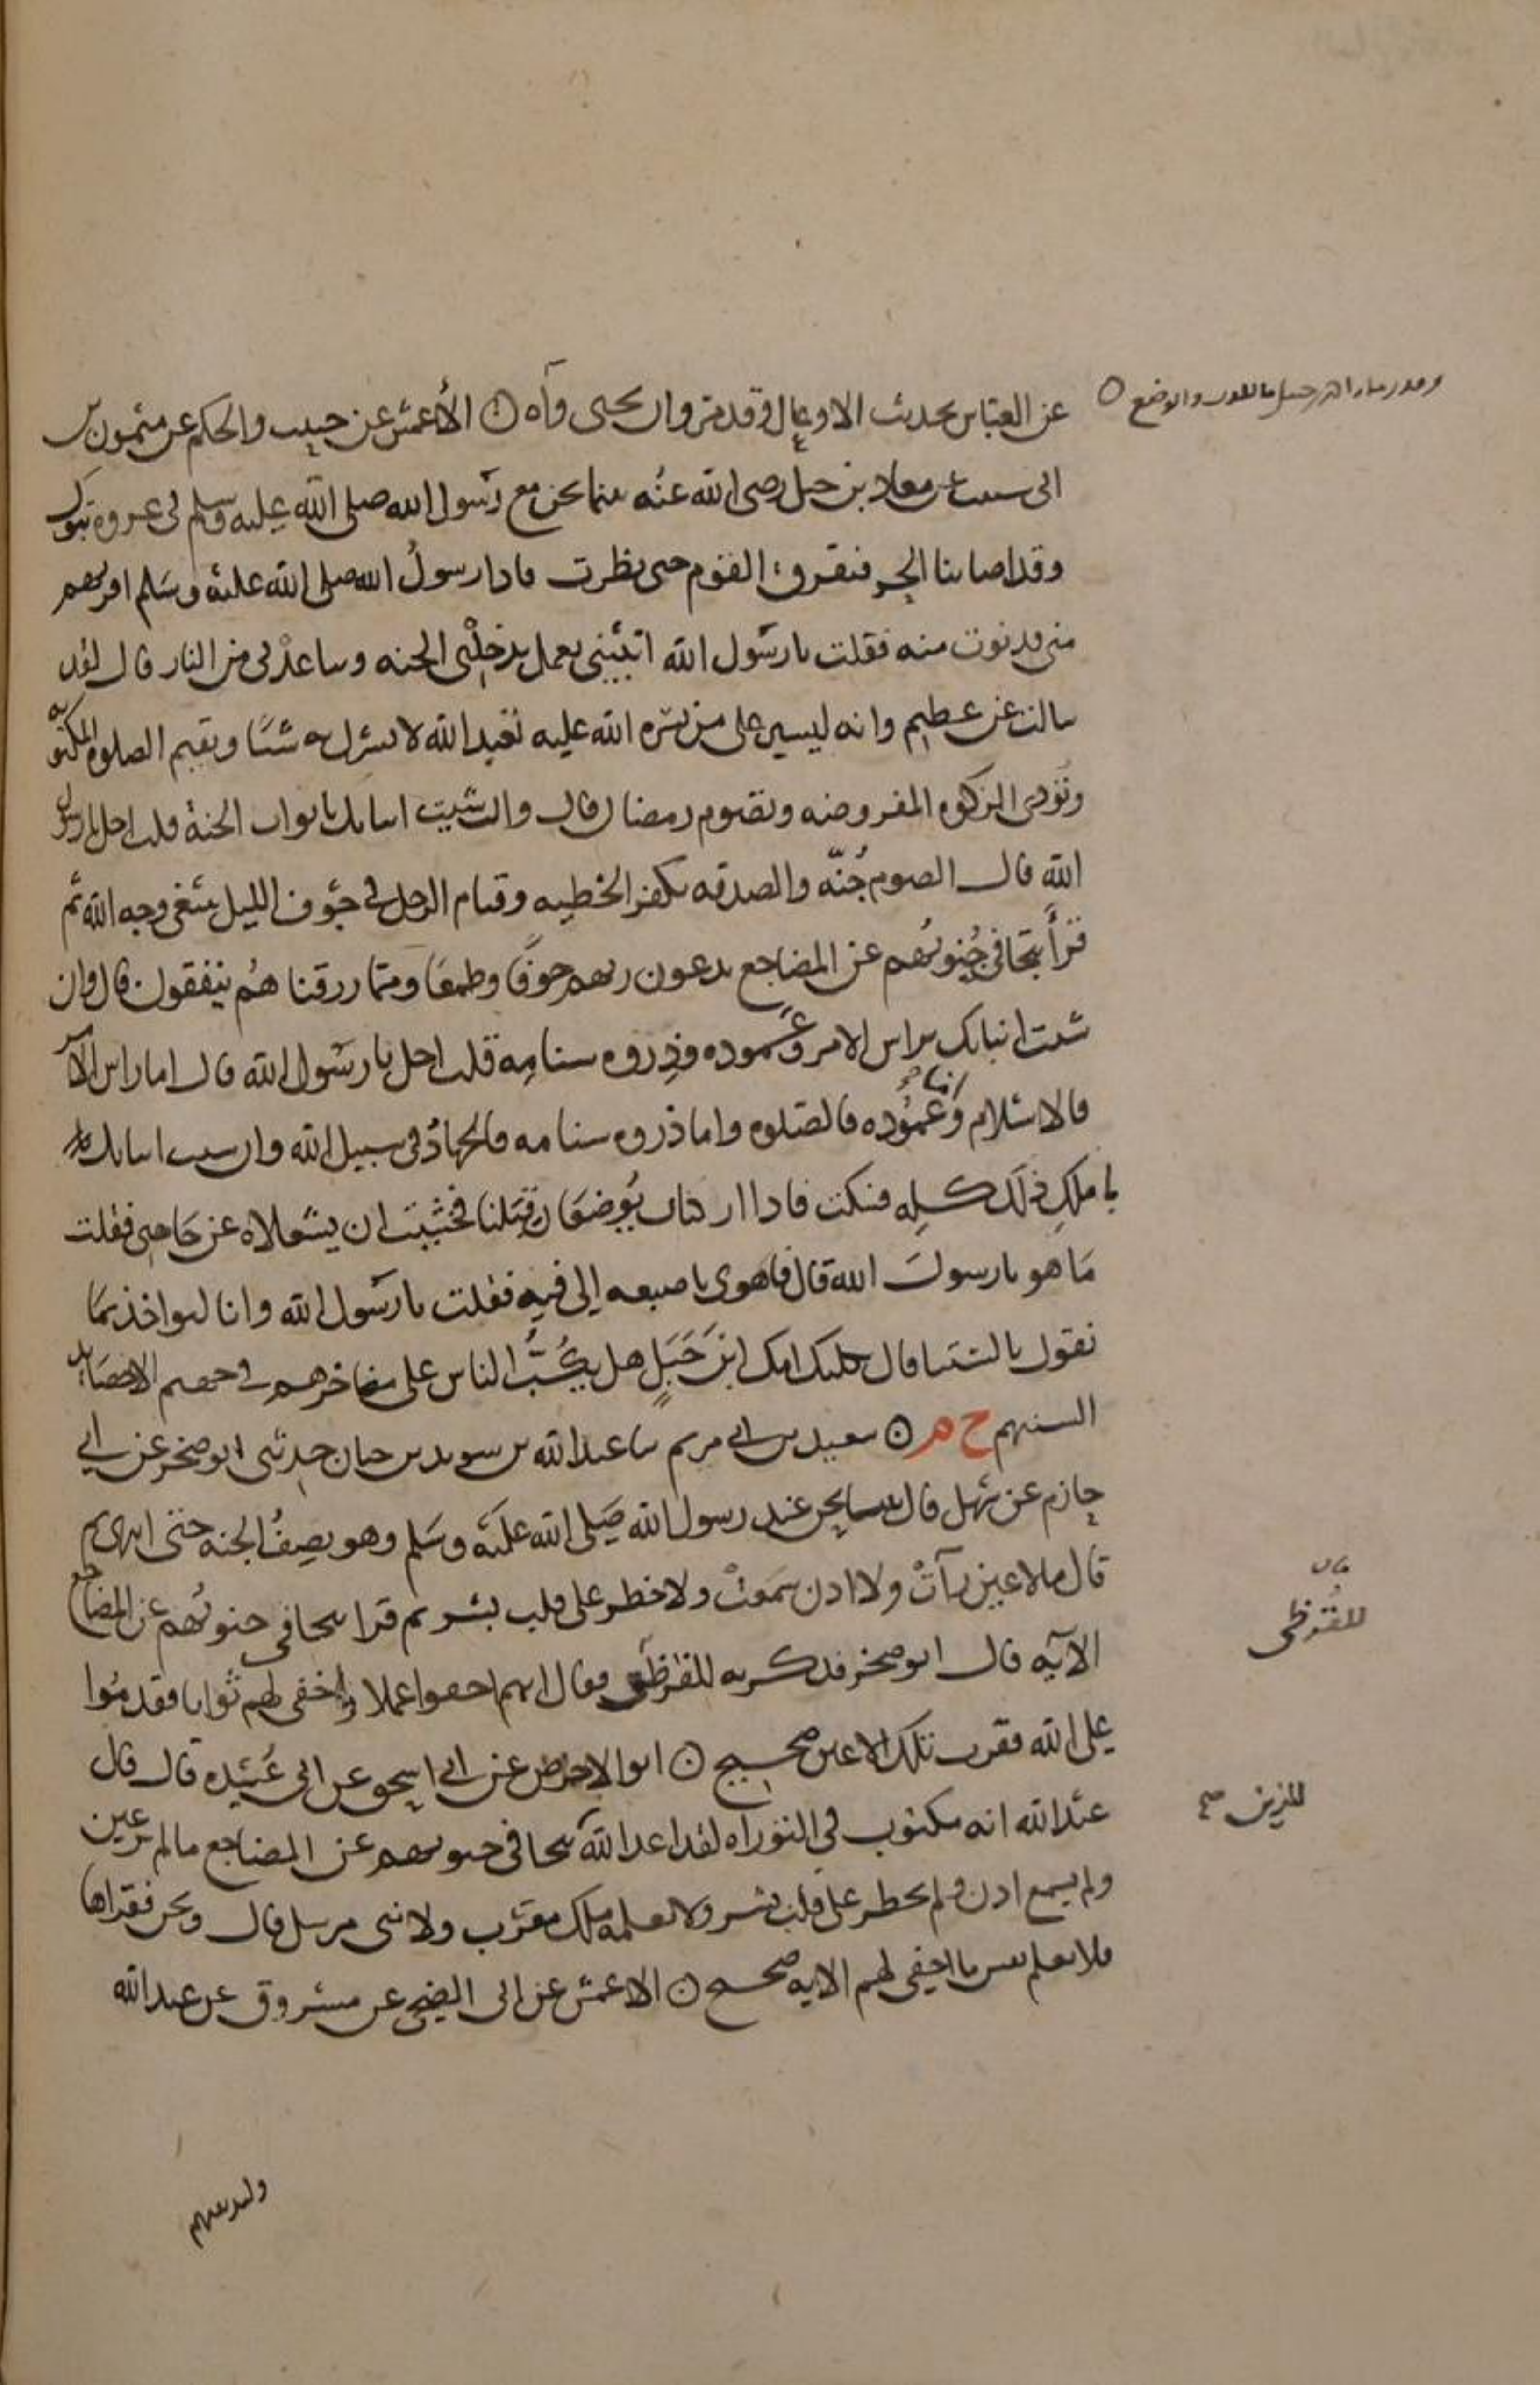 عن العباس بحديث الاوعال وقد مر وان يحيى واه ۞ الأعمش عن حبيب والحكم عن ميمون بن
ابى شبيب عن معاذ بن جبل رضى الله عنه بينما نحن مع رسول الله صلى الله عليه وسلم فى غزوة تبوك
وقد اصابنا الحر فتفرق القوم حتى نظرت فاذا رسول الله صلى الله عليه وسلم اقربهم
منى فدنوت منه فقلت يا رسول الله انبئنى بعمل يدخلنى الجنه وباعدنى من النار قال لقد
سالت عن عظيم وانه ليسير على من يسره الله عليه تعبد الله لا تشرك به شئا وتقيم الصلوة المكتوبه
وتؤدى الزكوة المفروضه وتصوم رمضان قال وان شيت انباتك بابواب الجنة قلت اجل يا رسول
الله قال الصوم جُنّه والصدقه تكفر الخطيه وقيام الرجل فى جوف الليل يبتغى وجه الله ثم
قرأ تتجافى جُنوبُهم عن المضاجع يدعون ربهم خوفًا وطمعًا ومما رزقناهُم ينفقون قال وان
شئت انباتك براس الامر وعموده وذروه سنامه قلت اجل يا رسول الله قال اما راس الامر
فالاسلام وأما عمُوده فالصلوه واما ذروه سنامه فالجهادُ فى سبيل الله وان شيت انباتك
باملك ذلك كله فسكت فاذا راكبان يُوضعان قِبَلنا فخشيت ان يشغلاه عن حاجتى فقلت
مَا هو يا رسولَ الله قال فاهوى باصبعه إلى فيه فقلت يا رسول الله وانا لنواخذ بما
نقول بالسنتنا قال ثكلتك امك ابنَ جَبَلٍ هل يكُبُّ الناس على مناخرهم فى جهنم الا حصَايد
السنتهم خ م ۞ سعيد بن ابى مريم ثنا عبد الله بن سويد بن حيان حدثنى ابو صخر عن ابى
حازم عن سهل قال بينما نحن عند رسول الله صَلى الله عليه وسَلم وهو يصِفُ الجنه حتى انتهى ثم
قال ما لا عين رأتْ ولا اذن سَمَعتْ ولا خطر على قلب بشر ثم قرا تتجافى جنوبُهم عن المضاجع
الآيه قال ابو صخر فذكرته للقرظى فقال انهم اخفوا عملا واخفى لهم ثوابا فقدمُوا
على الله فقرت تلك الاعين صحيح ۞ ابو الاحوص عن ابى اسحق عن ابى عُبَيْده قال قال
عبد الله انه مكتوب فى التوراه لقد اعد الله تتجافى جنوبهم عن المضاجع ما لم تر عين
ولم يسمع اذن ولم يخطر على قلب بشر ولا يعلمه ملك مقرب ولا نبى مرسل قال ونحن نقراها
فلا تعلم نفس ما اخفى لهم الايه صحيح ۞ الاعمش عن ابى الضحى عن مسروق عن عبد الله
بيان
للقُرَظى
للذين صح
ولنذيقنهم